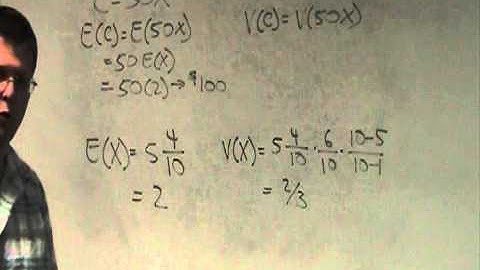 C=50X
E(C)=E(50X)
=50E(X)
=50(2)→$100
V(C)=V(50X)
E(X)=5 4/10
=2
V(X)=5 4/10 · 6/10 · 10-5/10-1
=2/3